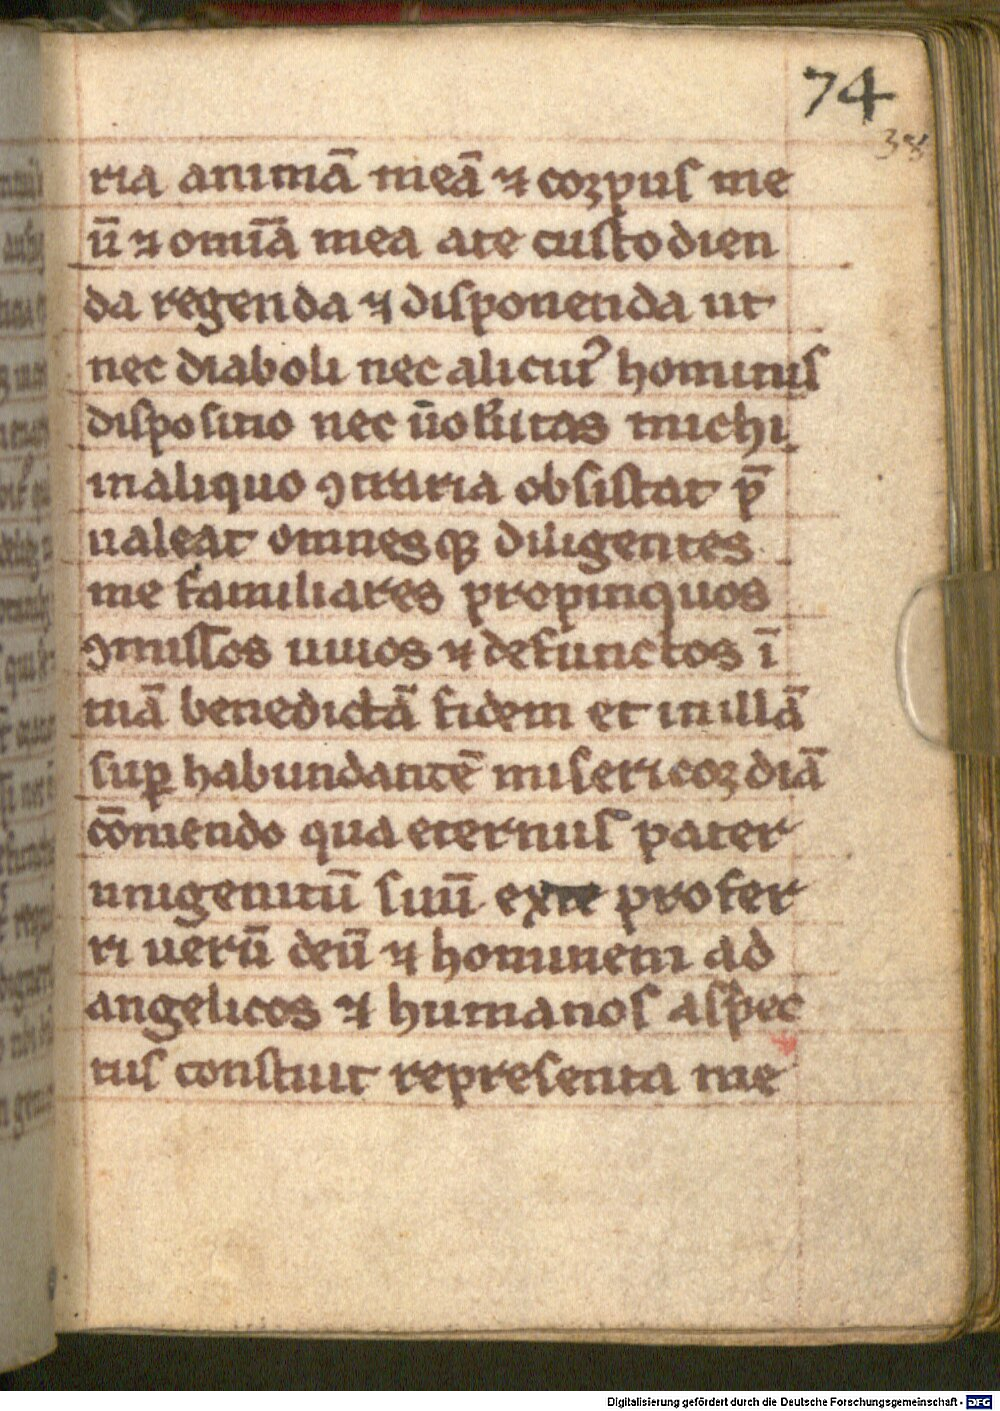 74
ria animā meā ⁊ corpus me
ū ⁊ om̄ia mea a te custodien
da regenda ⁊ disponenda ut
nec diaboli nec alicuiꝰ hominis
dispositio nec michi
in aliquo ꝯtraria obsistat p̄
ualeat omnesqꝫ diligentes
me familiares propinquos
ꝯmissos uiuos ⁊ defunctos ī
tuā benedictā fidem et in illā
suꝑ habundantē misericordiā
cōmendo qua eternus pater
unigenitū suū ex te profer
ri uerū deū ⁊ hominem ad
angelicos ⁊ humanos aspec
tus constituit representa me
Digitalisierung gefördert durch die Deutsche Forschungsgemeinschaft - DFG